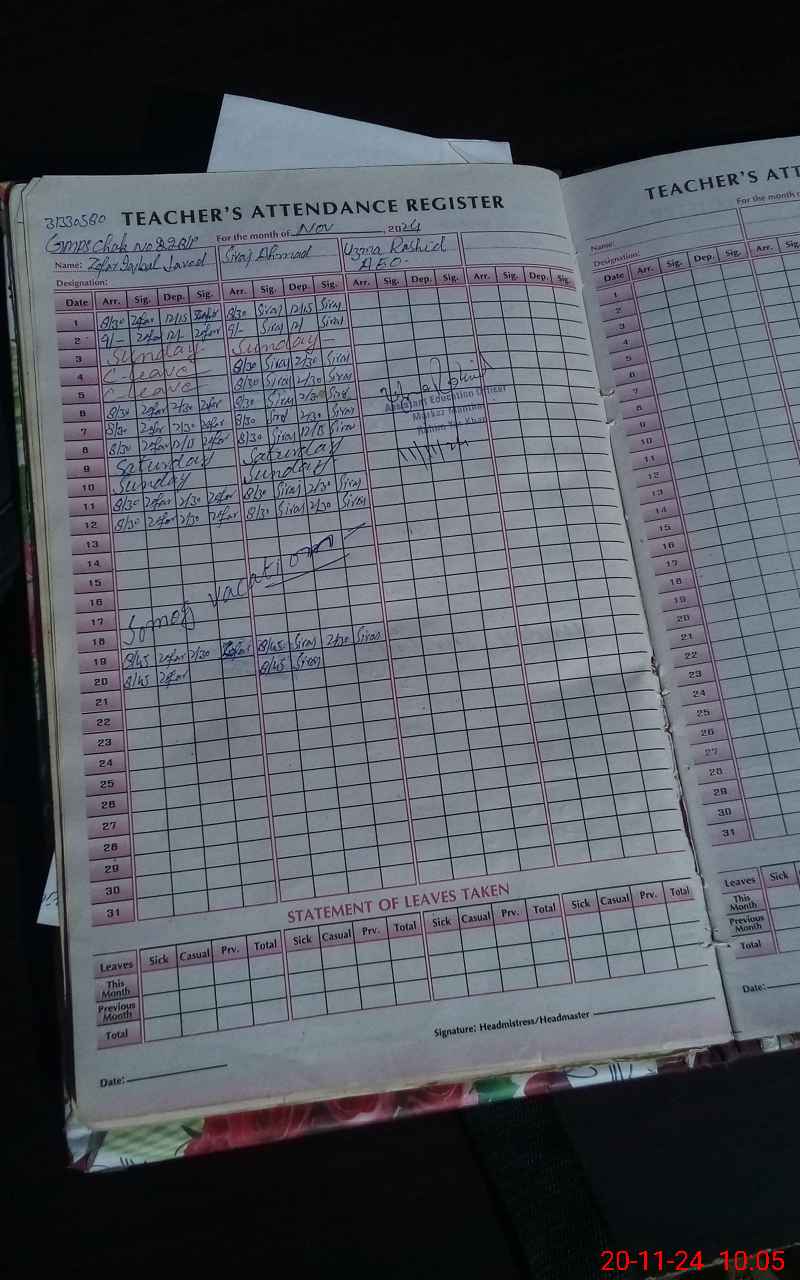 31330580 TEACHER'S ATTENDANCE REGISTER
GMPS Chak No 82B/P For the month of Nov , 2024
Name: Zafar Iqbal Javed Siraj Ahmad Uzma Rashid
AEO.
Designation:
Date Arr. Sig. Dep. Sig. Arr. Sig. Dep. Sig. Arr. Sig. Dep. Sig. Arr. Sig. Dep. Sig.
1 8/30 Zafar 12/15 Zafar 8/30 Siraj 12/15 Siraj
2 9/- Zafar 12/- Zafar 9/- Siraj 12/ Siraj
3 Sunday Sunday
4 C-leave 8/30 Siraj 2/30 Siraj
5 C-leave 8/30 Siraj 2/30 Siraj
6 8/30 Zafar 2/30 Zafar 8/30 Siraj 2/30 Siraj
7 8/30 Zafar 2/30 Zafar 8/30 Siraj 2/30 Siraj
8 8/30 Zafar 12/15 Zafar 8/30 Siraj 12/15 Siraj
9 Saturday Saturday
10 Sunday Sunday
11 8/30 Zafar 2/30 Zafar 8/30 Siraj 2/30 Siraj
12 8/30 Zafar 2/30 Zafar 8/30 Siraj 2/30 Siraj
Assistant Education Officer
Markaz
Rahim Yar Khan
11/11/24
13
14
15
16
17
Somog vacation
18
19 8/45 Zafar 2/30 Zafar 8/45 Siraj 2/30 Siraj
20 8/45 Zafar 8/45 Siraj
21
22
23
24
25
26
27
28
29
30
31
STATEMENT OF LEAVES TAKEN
Leaves Sick Casual Prv. Total Sick Casual Prv. Total Sick Casual Prv. Total Sick Casual Prv. Total
This Month
Previous Month
Total
Signature: Headmistress/Headmaster
Date:
TEACHER'S ATT
For the month
Name:
Designation:
Date Arr. Sig. Dep. Sig. Arr.
1
2
3
4
5
6
7
8
9
10
11
12
13
14
15
16
17
18
19
20
21
22
23
24
25
26
27
28
29
30
31
Leaves Sick
This Month
Previous Month
Total
Date:
20-11-24 10:05